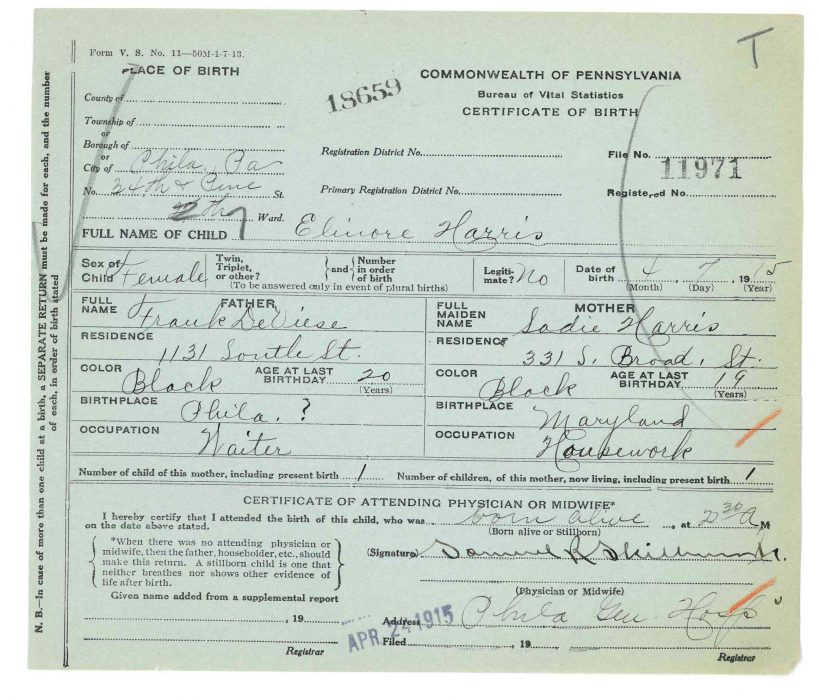 Form V. S. No. 11—50M-1-7-13.
PLACE OF BIRTH
County of
Township of
or
Borough of
or
City of Phila Pa
No. 34th & Pine St.
Ward.
18659
T
COMMONWEALTH OF PENNSYLVANIA
Bureau of Vital Statistics
CERTIFICATE OF BIRTH
Registration District No.
File No. 11971
Primary Registration District No.
Registered No.
FULL NAME OF CHILD Elinore Harris
Sex of Child Female
Twin, Triplet, or other?
and
Number in order of birth
(To be answered only in event of plural births)
Legiti-mate? No
Date of birth 4 7 1915
(Month) (Day) (Year)
FATHER
FULL NAME Frank DeViese
RESIDENCE
1131 South St.
COLOR Black AGE AT LAST BIRTHDAY 20
(Years)
BIRTHPLACE Phila. ?
OCCUPATION Waiter
MOTHER
FULL MAIDEN NAME Sadie Harris
RESIDENCE
331 S. Broad. St.
COLOR Black AGE AT LAST BIRTHDAY 19
(Years)
BIRTHPLACE Maryland
OCCUPATION Housework
Number of child of this mother, including present birth 1 Number of children, of this mother, now living, including present birth 1
CERTIFICATE OF ATTENDING PHYSICIAN OR MIDWIFE*
I hereby certify that I attended the birth of this child, who was born alive, at 2 30 A M
on the date above stated. (Born alive or Stillborn)
*When there was no attending physician or
midwife, then the father, householder, etc., should
make this return. A stillborn child is one that
neither breathes nor shows other evidence of
life after birth.
(Signature) Samuel R
(Physician or Midwife)
Given name added from a supplemental report
, 19
Registrar
Address Phila Gen. Hosp
APR 24 1915
Filed , 19
Registrar
N. B.—In case of more than one child at a birth, a SEPARATE RETURN must be made for each, and the number
of each, in order of birth stated